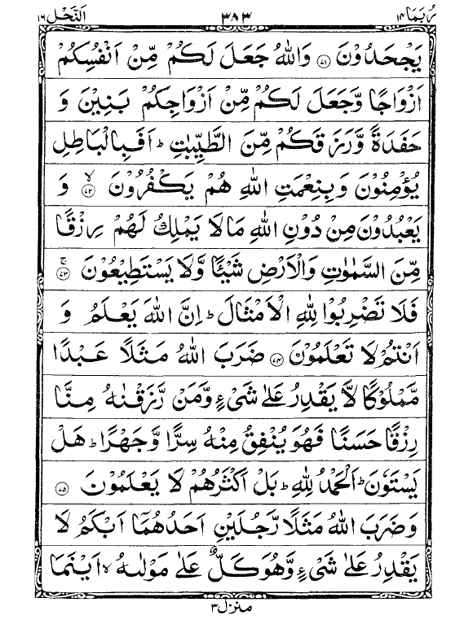 رُبَمَا ١٤ ٣٨٣ اَلنَّحْل ١٦
يَجْحَدُوْنَ ﴿٧١﴾ وَاللّٰهُ جَعَلَ لَكُمْ مِّنْ اَنْفُسِكُمْ
اَزْوَاجًا وَّجَعَلَ لَكُمْ مِّنْ اَزْوَاجِكُمْ بَنِيْنَ وَ
حَفَدَةً وَّرَزَقَكُمْ مِّنَ الطَّيِّبٰتِ ؕ اَفَبِالْبَاطِلِ
يُؤْمِنُوْنَ وَبِنِعْمَتِ اللّٰهِ هُمْ يَكْفُرُوْنَ ﴿٧٢﴾ۙ وَ
يَعْبُدُوْنَ مِنْ دُوْنِ اللّٰهِ مَا لَا يَمْلِكُ لَهُمْ رِزْقًا
مِّنَ السَّمٰوٰتِ وَالْاَرْضِ شَيْـًٔا وَّلَا يَسْتَطِيْعُوْنَ ﴿٧٣﴾ۚ
فَلَا تَضْرِبُوْا لِلّٰهِ الْاَمْثَالَ ؕ اِنَّ اللّٰهَ يَعْلَمُ وَ
اَنْتُمْ لَا تَعْلَمُوْنَ ﴿٧٤﴾ ضَرَبَ اللّٰهُ مَثَلًا عَبْدًا
مَّمْلُوْكًا لَّا يَقْدِرُ عَلٰى شَيْءٍ وَّمَنْ رَّزَقْنٰهُ مِنَّا
رِزْقًا حَسَنًا فَهُوَ يُنْفِقُ مِنْهُ سِرًّا وَّجَهْرًا ؕ هَلْ
يَسْتَوٗنَ ؕ اَلْحَمْدُ لِلّٰهِ ؕ بَلْ اَكْثَرُهُمْ لَا يَعْلَمُوْنَ ﴿٧٥﴾
وَضَرَبَ اللّٰهُ مَثَلًا رَّجُلَيْنِ اَحَدُهُمَاۤ اَبْكَمُ لَا
يَقْدِرُ عَلٰى شَيْءٍ وَّهُوَ كَلٌّ عَلٰى مَوْلٰىهُ ۙ اَيْنَمَا
منزل ٣